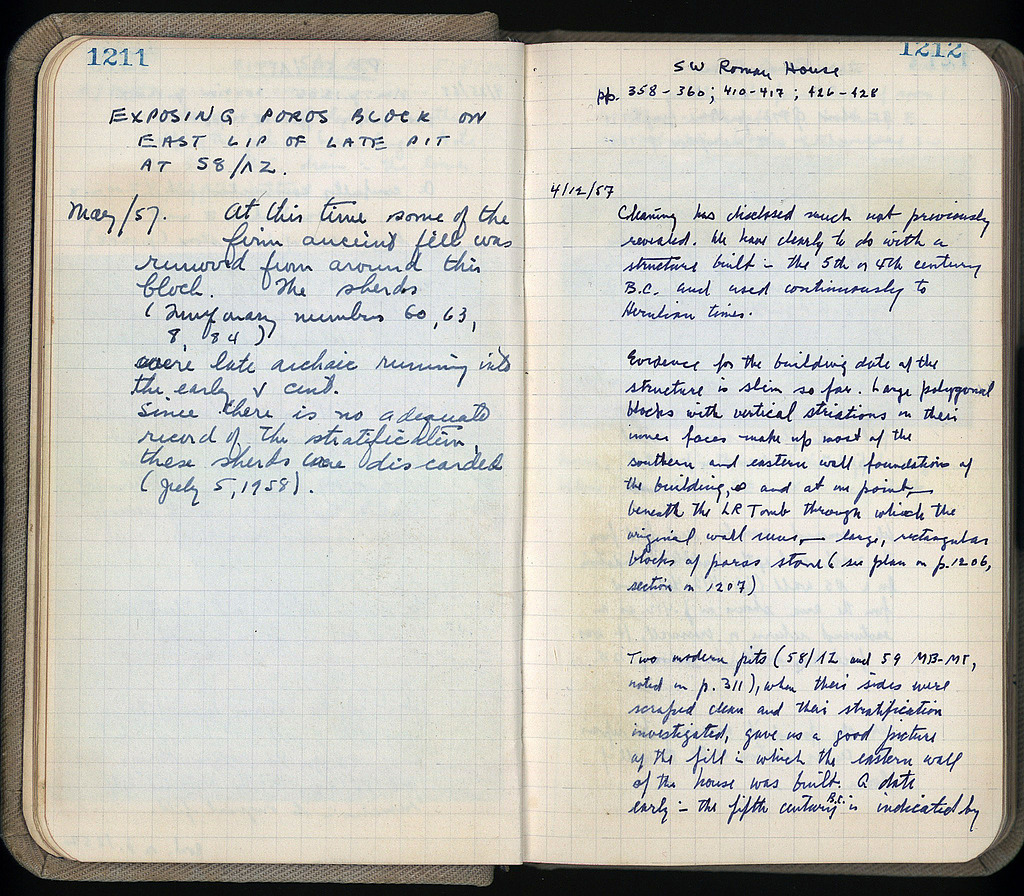 1211
EXPOSING POROS BLOCK ON
EAST LIP OF LATE PIT
AT 58/ΛΖ.
May/57. At this time some of the
firm ancient fill was
removed from around this
block. The sherds
(Temporary numbers 60, 63,
8, 84)
were late archaic running into
the early V cent.
Since there is no adequate
record of the stratification,
these sherds were discarded
(July 5, 1958).
1212
SW Roman House
pp. 358-360; 410-417; 426-428
4/12/57
Cleaning has disclosed much not previously
revealed. We have clearly to do with a
structure built in the 5th or 4th century
B.C. and used continuously to
Herulian times.
Evidence for the building date of the
structure is slim so far. Large polygonal
blocks with vertical striations on their
inner faces make up most of the
southern and eastern wall foundations of
the building, and at one point,—
beneath the LR Tomb through which the
original wall runs,— large, rectangular
blocks of poros stone (see plan on p. 1206,
section on 1207)
Two modern pits (58/ΛΖ and 59 ΜΒ-ΜΓ,
noted on p. 311), when their sides were
scraped clean and their stratification
investigated, gave us a good picture
of the fill in which the eastern wall
of the house was built. A date
early in the fifth century B.C. is indicated by